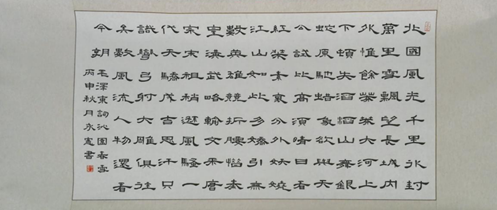 北國風光千里冰封
萬里雪飄望長城内
外惟餘莽莽大河上
下頓失滔滔山舞銀
蛇原馳蠟象欲與天
公試比高須晴日看
紅裝素裹分外妖嬈
江山如此多嬌引無
數英雄競折腰惜秦
皇漢武略輸文采唐
宗宋祖稍遜風騷一
代天驕成吉思汗只
識彎弓射大雕俱往
矣數風流人物還看
今朝
毛澤東詞沁園春雪
丙申秋月永憲書